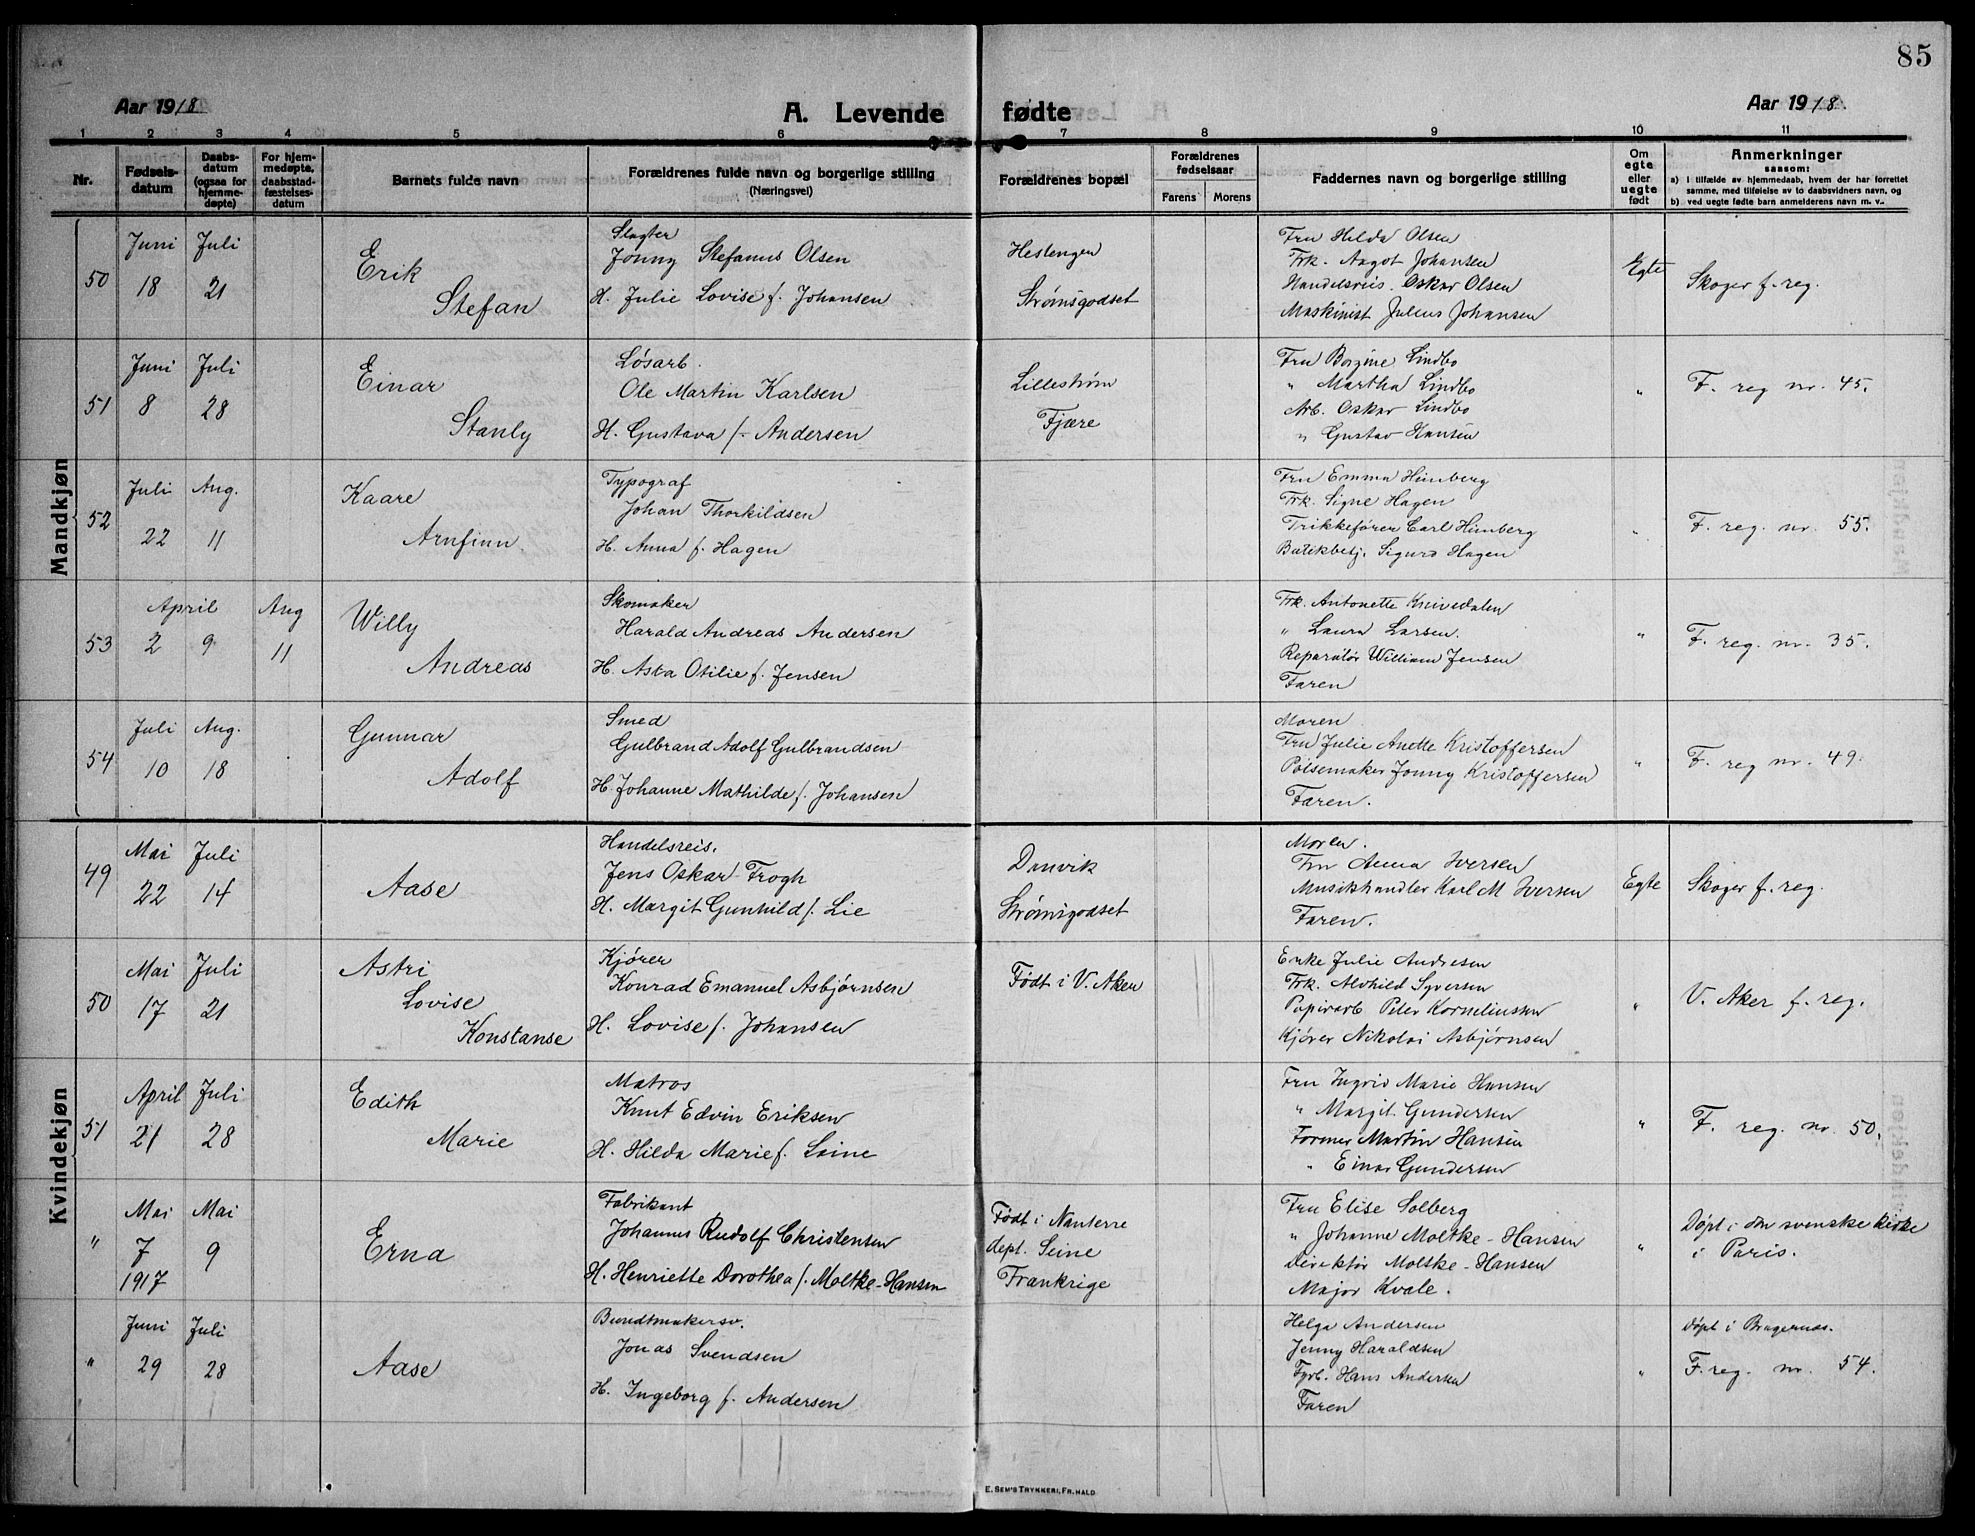 85
Aar 1918
A. Levende fødte
Aar 1918.
1 2 3 4 5 6 7 8 9 10 11
Nr.
Fødsels-
datum
Daabs-
datum
(ogsaa for
hjemme-
døpte)
For hjem-
medøpte,
daabsstad-
fæstelses-
datum
Barnets fulde navn
Forældrenes fulde navn og borgerlige stilling
(Næringsvei)
Forældrenes bopæl
Forældrenes
fødselsaar
Farens
Morens
Faddernes navn og borgerlige stilling
Om
egte
eller
uegte
født
Anmerkninger
saasom:
a) I tilfælde av hjemmedaab, hvem der har forrettet
samme, med tilføielse av to daabsvidners navn, og
b) ved uegte fødte barn anmelderens navn m. v..
Mandkjøn
50
Juni
18
Juli
21
Erik
Stefan
Slagter
Jonny Stefanus Olsen
H. Julie Lovise f. Johansen
Hestengen
Strømsgodset
Fru Hilda Olsen
Frk. Aagot Johansen
Handelsreis. Oskar Olsen
Maskinist Julius Johansen
Egte
Skoger f. reg.
51
Juni
8
Juli
28
Einar
Stanly
Løsarb.
Ole Martin Karlsen
H. Gustava f. Andersen
Lillestrøm
Fjære
Fru Borgine Lindbo
" Martha Lindbo
Arb. Oskar Lindbo
" Gustav Hansen
"
F. reg nr. 45.
52
Juli
22
Aug.
11
Kaare
Arnfinn.
Typograf
Johan Thorkildsen
H. Anna f. Hagen
Fru Emma Himberg
Frk. Signe Hagen
Trikkefører Carl Himberg
Butikbetj. Sigurd Hagen
"
F. reg. nr. 55.
53
April
2
9
Aug
11
Willy
Andreas
Skomaker
Harald Andreas Andersen
H. Aska Otilie f. Jensen
Frk. Antonette Knivedalen
" Laura Larsen.
Reparatør William Jensen
Faren
"
F. reg. nr. 35.
54
Juli
10
Aug.
18
Gunnar
Adolf
Smed
Gulbrand Adolf Gulbrandsen
H. Johanne Mathilde f. Johansen
Moren
Fru Julie Anette Kristoffersen
Pølsemaker Jonny Kristoffersen
Faren.
"
F. reg nr. 49.
Kvindekjøn
49
Mai
22
Juli
14
Aase
Handelsreis.
Jens Oskar Trogh
H. Margit Gunhild f. Lie
Danvik
Strømsgodset
Moren.
Fru Anna Iversen
Musikhandler Karl M Iversen
Faren.
Egte
Skoger f. reg.
50
Mai
17
Juli
21
Astri
Lovise
Konstanse
Kjører
Konrad Emanuel Asbjørnsen
H. Lovise f. Johansen
Født i V. Aker
Enke Julie Andresen
Frk. Alvhild Syversen
Papirarb Peter Korneliussen
Kjører Nikolai Asbjørnsen
"
V. Aker f. reg.
51
April
21
Juli
28
Edith
Marie
Matros
Knut Edvin Eriksen
H. Hilda Marie f. Loine
Fru Ingrid Marie Hansen
" Margit Gundersen
Former Martin Hansen
" Einar Gundersen
"
F. reg. nr. 50.
"
Mai
7
1917
Mai
9
Erna
Fabrikant
Johannes Rudolf Christensen
H. Henriette Dorothea f. Moltke-Hansen
Født i Nanterre
dept. Seine
Frankrige
Fru Elise Solberg
" Johanne Moltke-Hansen
Direktør Moltke-Hansen
Major Kvale.
"
Døpt i den svenske kirke
i Paris.
"
Juni
29
Juli
28
Aase
Bundtmakersv.
Jonas Svendsen
H. Ingeborg f. Andersen
Helga Andersen
Jenny Haraldsen
Fyrb. Hans Andersen
Faren
"
Døpt i Bragernæs.
F. reg. nr. 54.
E. SEM'S TRYKKERI, FR.HALD